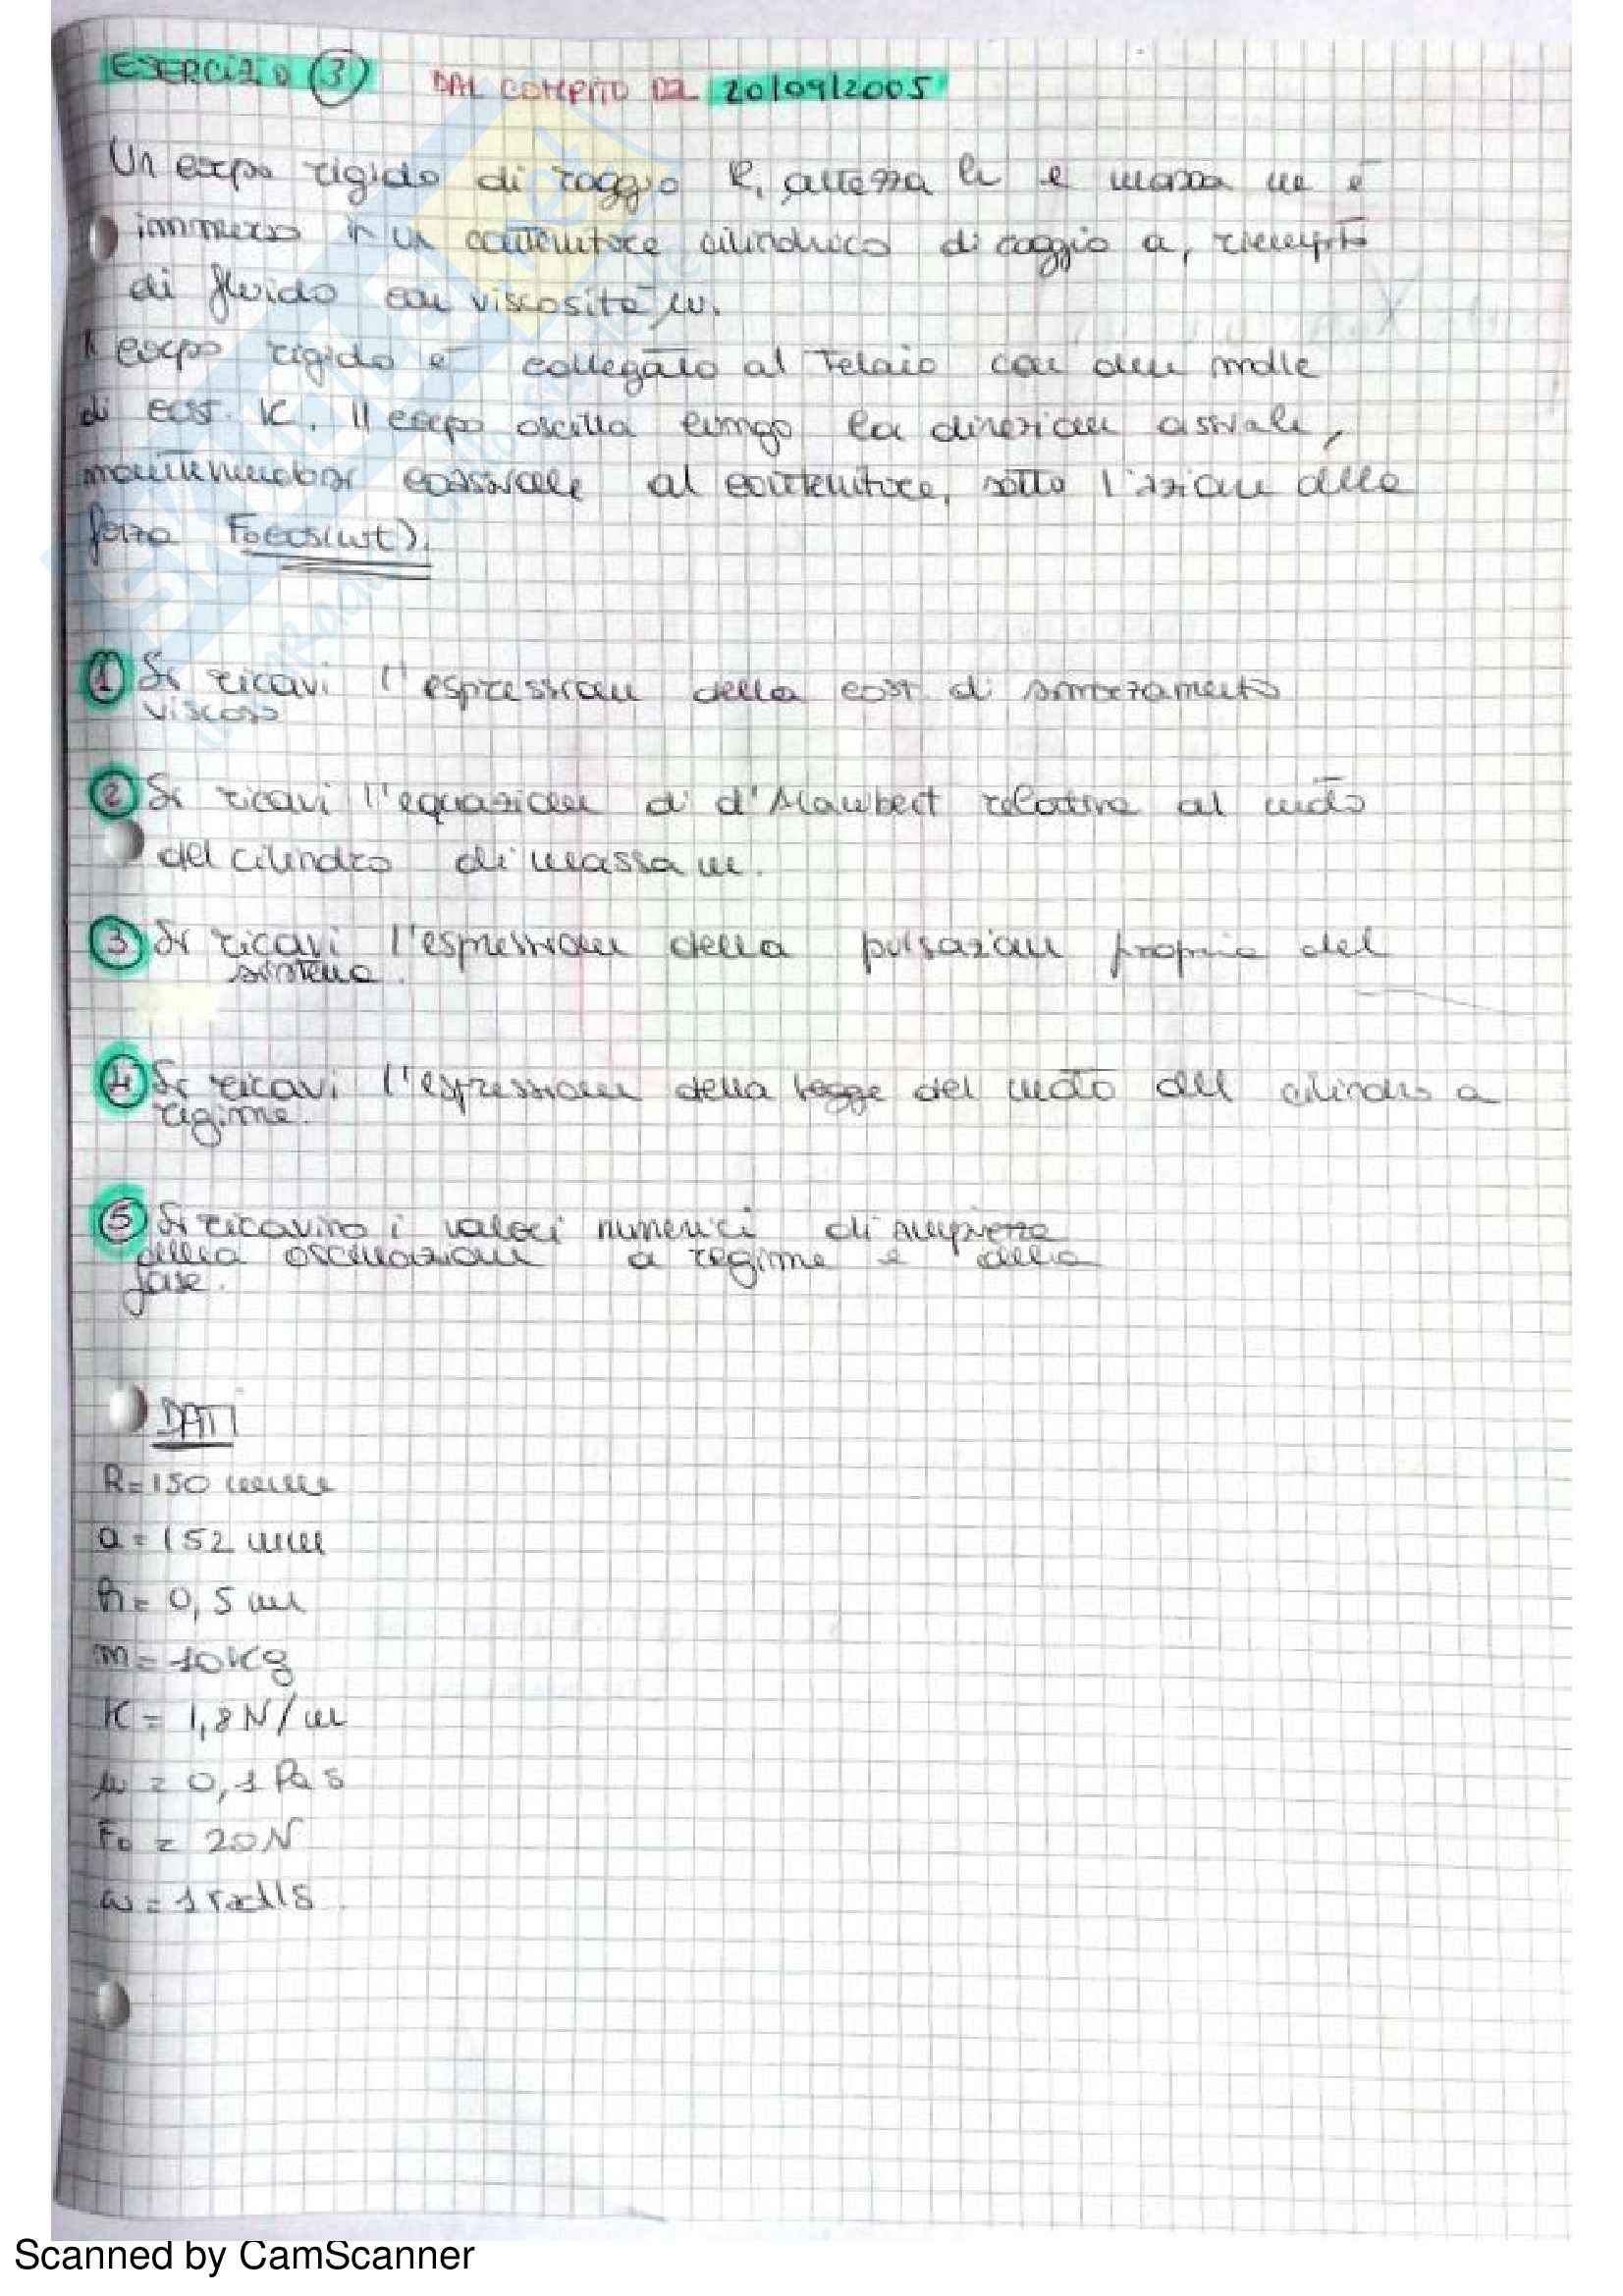 ESERCIZIO 3 DAL COMPITO DEL 20/09/2005
Un corpo rigido di raggio R, altezza h e massa m è
immerso in un contenitore cilindrico di raggio a, riempito
di fluido con viscosità μ.
Il corpo rigido è collegato al telaio con due molle
di cost. K. Il corpo oscilla lungo la direzione assiale,
mantenendosi coassiale al contenitore, sotto l'azione della
forza F₀cos(ωt).
1 Si ricavi l'espressione della cost. di smorzamento
viscoso
2 Si ricavi l'equazione di d'Alambert relativa al moto
del cilindro di massa m.
3 Si ricavi l'espressione della pulsazione propria del
sistema.
4 Si ricavi l'espressione della legge del moto del cilindro a
regime.
5 Si ricavino i valori numerici di ampiezza
della oscillazione a regime e della
fase.
DATI
R=150 mm
a=152 mm
h= 0,5 m
m=10Kg
K= 1,8N/m
μ = 0,1 Pa s
F₀ = 20N
ω=1 rad/s.
Scanned by CamScanner